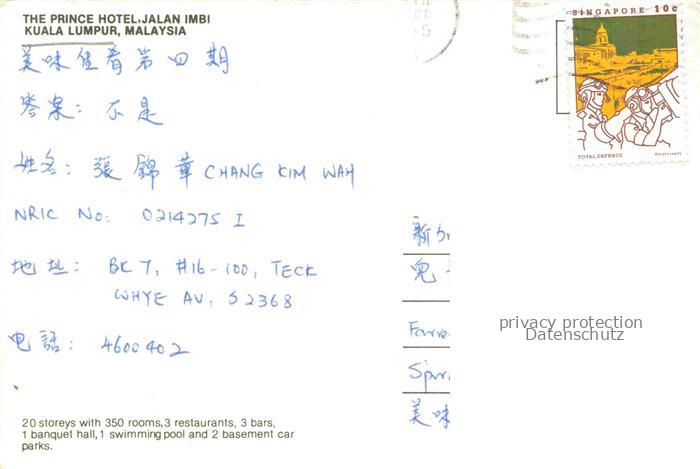 THE PRINCE HOTEL:JALAN IMBI
KUALA LUMPUR, MALAYSIA
美味佳肴第四期
答案: 不是
姓名: 張錦華 CHANG KIM WAH
NRIC No: 0214275 I
地址: BK 7, #16-100, TECK
WHYE AV, S 2368
电話: 4600402
20 storeys with 350 rooms,3 restaurants, 3 bars,
1 banquet hall,1 swimming pool and 2 basement car
parks.
SINGAPORE 10c
TOTAL DEFENCE
新加
兒
美味
privacy protection
Datenschutz